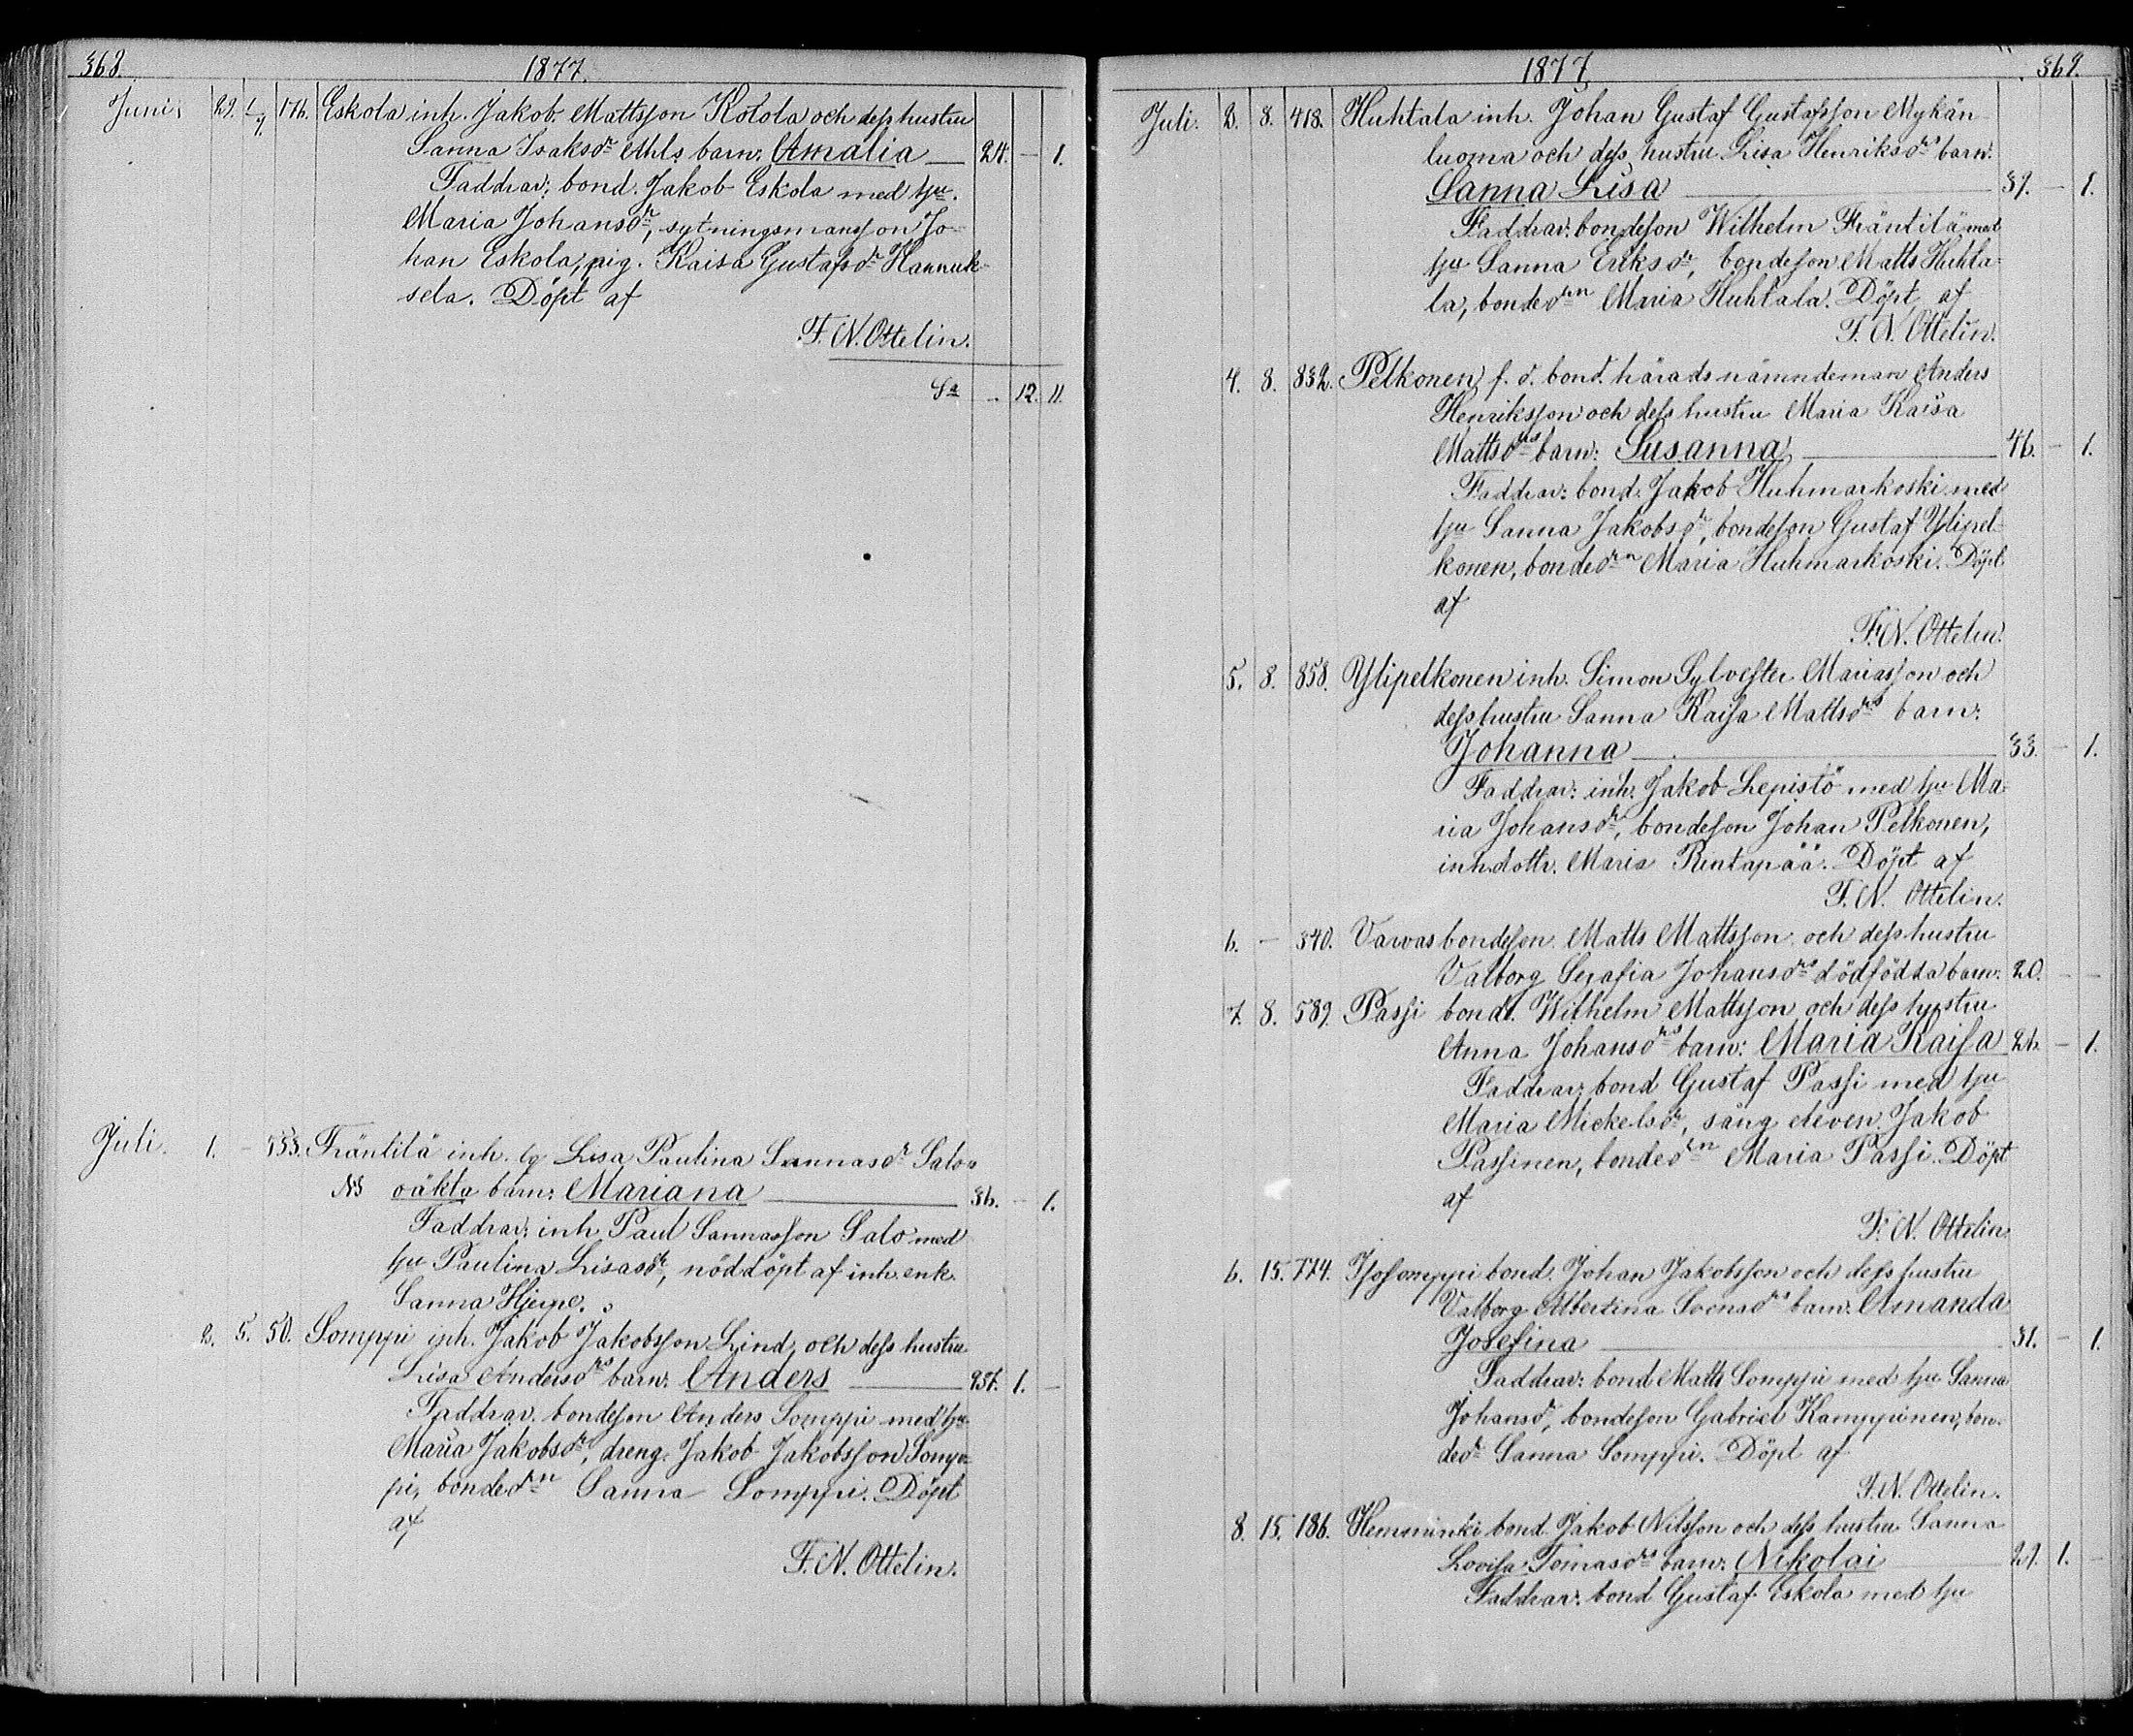 368. 1877.
Juni. 29. 1/7. 176. Eskola inh. Jakob Mattsson Kotola och dess hustru
Sanna Isaksdr Ahls barn: Amalia 24. – 1.
Faddrar: bond. Jakob Eskola med hu.
Maria Johansdr, sytningsmansson Jo-
han Eskola, pig. Kaisa Gustafsdr Hannuk-
sela. Döpt af
F. N. Ottelin.
Sa – 12. 11.
Juli. 1. – 753. Fräntilä inh. Lisa Paulina Sannasdr Salos
NB oäkta barn: Mariana 36. – 1.
Faddrar: inh. Paul Sannasson Salo med
hu Paulina Lisasdr, nöddöpt af inh. enk.
Sanna Hjerpe.
2. 5. 50. Somppi inh. Jakob Jakobsson Lind, och dess hustru
Lisa Andersdrs barn: Anders 1. –
Faddrar. bondeson Anders Somppi med hu
Maria Jakobsdr, dreng. Jakob Jakobsson Somp-
pi, bondedrn Sanna Somppi. Döpt
af
F. N. Ottelin.
1877. 369.
Juli. 2. 8. 418. Huhtala inh. Johan Gustaf Gustafsson Mykän-
luoma och dess hustru Lisa Henriksdrs barn:
Sanna Lisa 37. – 1.
Faddrar: bondeson Wilhelm Fräntilä med
hu Sanna Eriksdr, bondeson Matts Huhta-
la, bondedrn Maria Huhtala. Döpt af
F. N. Ottelin.
4. 8. 832. Pelkonen f. d. bond. häradsnämndeman Anders
Henriksson och dess hustru Maria Kaisa
Mattsdrs barn: Susanna 46. – 1.
Faddrar: bond. Jakob Huhmarkoski med
hu Sanna Jakobsdr, bondeson Gustaf Ylipel-
konen, bondedrn Maria Huhmarkoski. Döpt
af
F. N. Ottelin.
5. 8. 858. Ylipelkonen inh. Simon Sylvester Mariasson och
dess hustru Sanna Kaisa Mattsdrs barn:
Johanna 33. – 1.
Faddrar: inh. Jakob Lepistö med hu Ma-
ria Johansdr, bondeson Johan Pelkonen,
inh. dottr. Maria Rintapää. Döpt af
F. N. Ottelin.
6. – 340. Varvas bondeson Matts Mattsson och dess hustru
Valborg Serafia Johansdrs dödfödda barn: 20. – –
7. 8. 589. Passi bond. Wilhelm Mattsson och dess hustru
Anna Johansdrs barn: Maria Kaisa – 1.
Faddrar: bond Gustaf Passi med hu
Maria Mickelsdr, sång eleven Jakob
Passinen, bondedrn Maria Passi. Döpt
af
F. N. Ottelin.
6. 15. 774. Isosomppi bond. Johan Jakobsson och dess hustru
Valborg Albertina Svensdrs barn: Amanda
Josefina 31. – 1.
Faddrar: bond Matts Somppi med hu Sanna
Johansdr, bondeson Gabriel Kamppinen, bon-
dedr Sanna Somppi. Döpt af
F. N. Ottelin.
8. 15. 186. Hemminki bond. Jakob Nilsson och dess hustru Sanna
Lovisa Tomasdrs barn: Nikolai 29. 1. –
Faddrar: bond Gustaf Eskola med hu